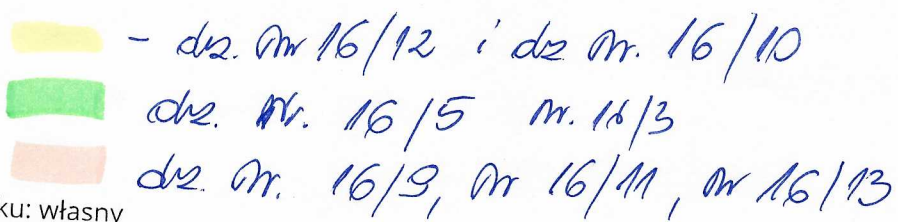 - dz. nr 16/12 i dz nr. 16/10
dz. nr. 16/5 nr. 16/3
dz. nr. 16/9, nr 16/11, nr 16/13
ku: własny